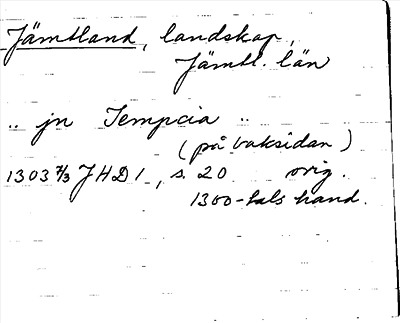 Jämtland, landskap,
Jämtl. län
" jn Tempcia "
(på baksidan)
1303 7/3 JHD 1, s. 20 orig.
1300-tals hand.